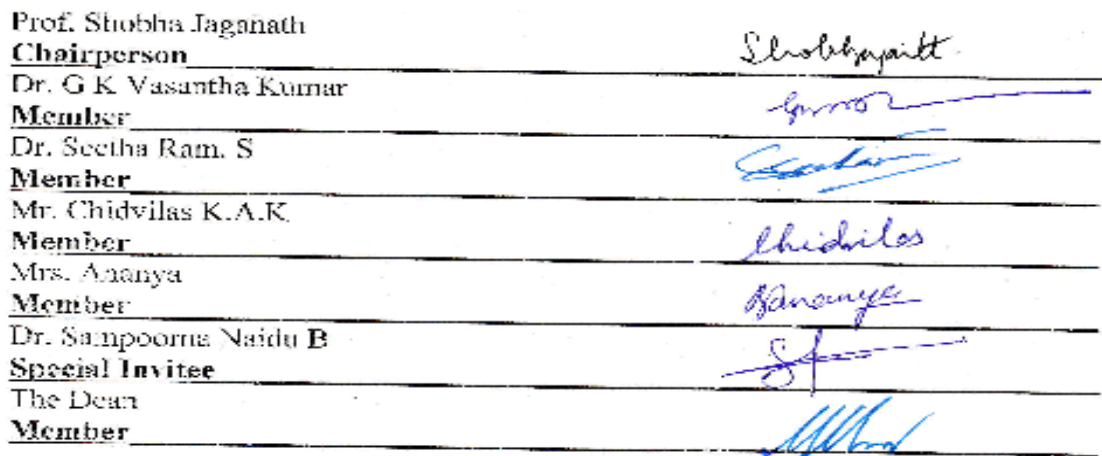 Prof. Shobha Jaganath
Chairperson
Dr. G K Vasantha Kumar
Member
Dr. Seetha Ram. S
Member
Mr. Chidvilas K.A.K
Member Chidvilas
Mrs. Ananya
Member Bananya
Dr. Sampoorna Naidu B
Special Invitee
The Dean
Member